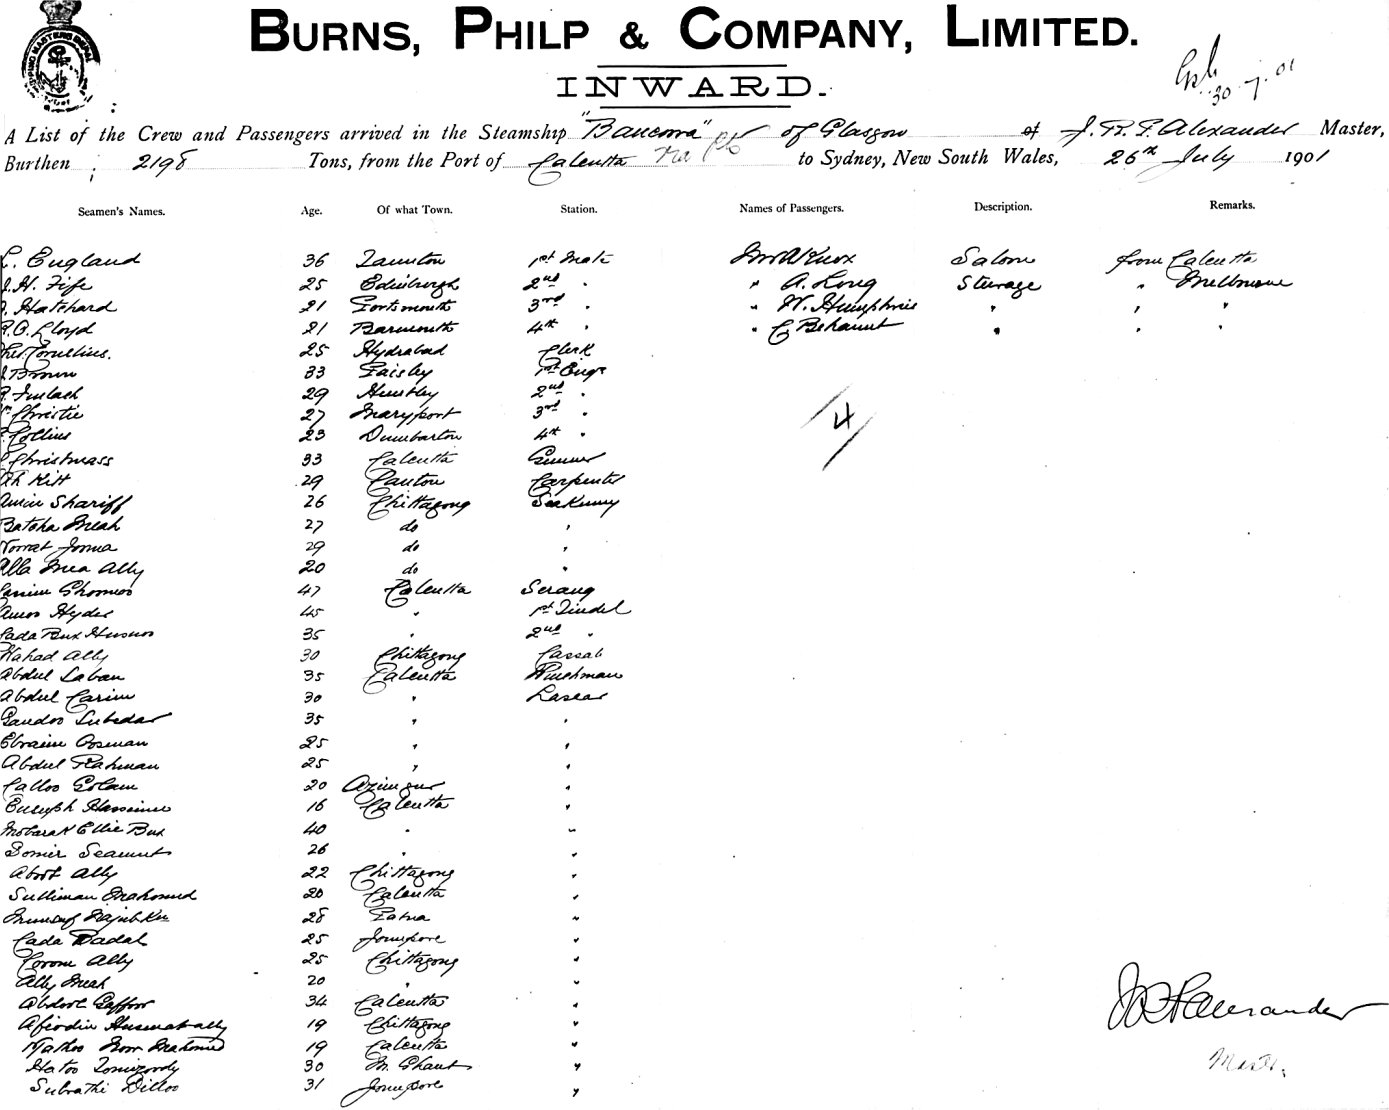 BURNS, PHILP & COMPANY, LIMITED.
INWARD.
30 7 01
A List of the Crew and Passengers arrived in the Steamship "Bancoora" of Glasgow of J. R. F. Alexander Master,
Burthen 2198 Tons, from the Port of Calcutta to Sydney, New South Wales, 26th July 1901
Seamen's Names. Age. Of what Town. Station. Names of Passengers. Description. Remarks.
England 36 Taunton 1st Mate Mr A Knox Saloon from Calcutta
J. H. Fife 25 Edinburgh 2nd " " A. Long Steerage " Melbourne
Hatchard 21 Portsmouth 3rd " " W. Humphries " " "
Lloyd 21 Barmouth 4th " " C " " "
Cornelius. 25 Hydrabad Clerk
J Brown 33 Paisley 1st Engr
29 Huntley 2nd "
Christie 27 Maryport 3rd "
Collins 23 Dumbarton 4th "
Christmass 33 Calcutta Gunner
Ah Kitt 29 Canton Carpenter
Shariff 26 Chittagong Seakunny
Batcha Meah 27 do "
Jorma 29 do "
Alla Mea Ally 20 do "
47 Calcutta Serang
Hyder 45 " 1st Tindel
35 " 2nd "
Wahad Ally 30 Chittagong Cassab
Abdul Laban 35 Calcutta Winchman
Abdul Carim 30 " Lascar
Gandoo Subedar 35 " "
Ebraim Oosman 25 " "
Abdul Rahman 25 " "
Calloo Golam 20 "
16 Calcutta "
Mobarak Ellie Bux 40 " "
26 " "
Ally 22 Chittagong "
Sulliman Mahomed 20 Calcutta "
28 Patna "
Cada 25 Jounpore "
Corom Ally 25 Chittagong "
Ally Meah 20 " "
Abdool Gaffoor 34 Calcutta "
19 Chittagong "
Nathoo Noor Mahomed 19 Calcutta "
Hatoo 30 M. Ghaut "
Subrathi Dilloo 31 Jounpore "
4
J R F Alexander
Master